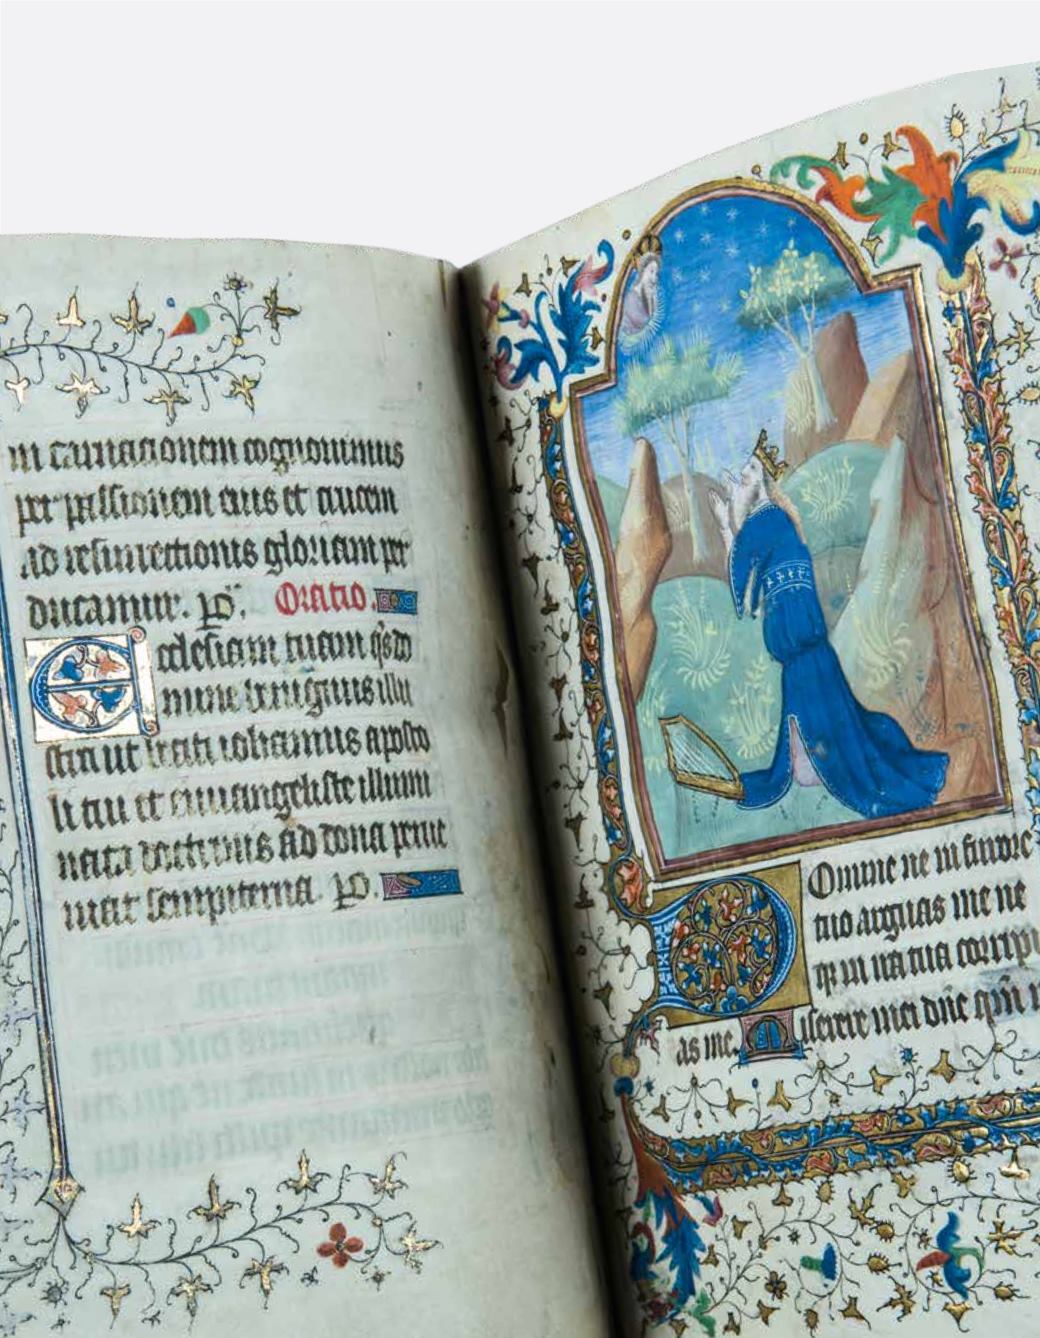 in carnationem cognouimus
per passionem eius et crucem
ad resurrectionis gloriam per
ducamur. p̄. Oratio.
Ecclesiam tuam q̄s do
mine benignus illu
stra ut beati iohannis aposto
li tui et euuangeliste illumi
nata doctrinis ad dona perue
niat sempiterna. P.
Domine ne in furore
tuo arguas me ne
q̄ in ira tua corripi
as me. Miserere mei dn̄e qm̄